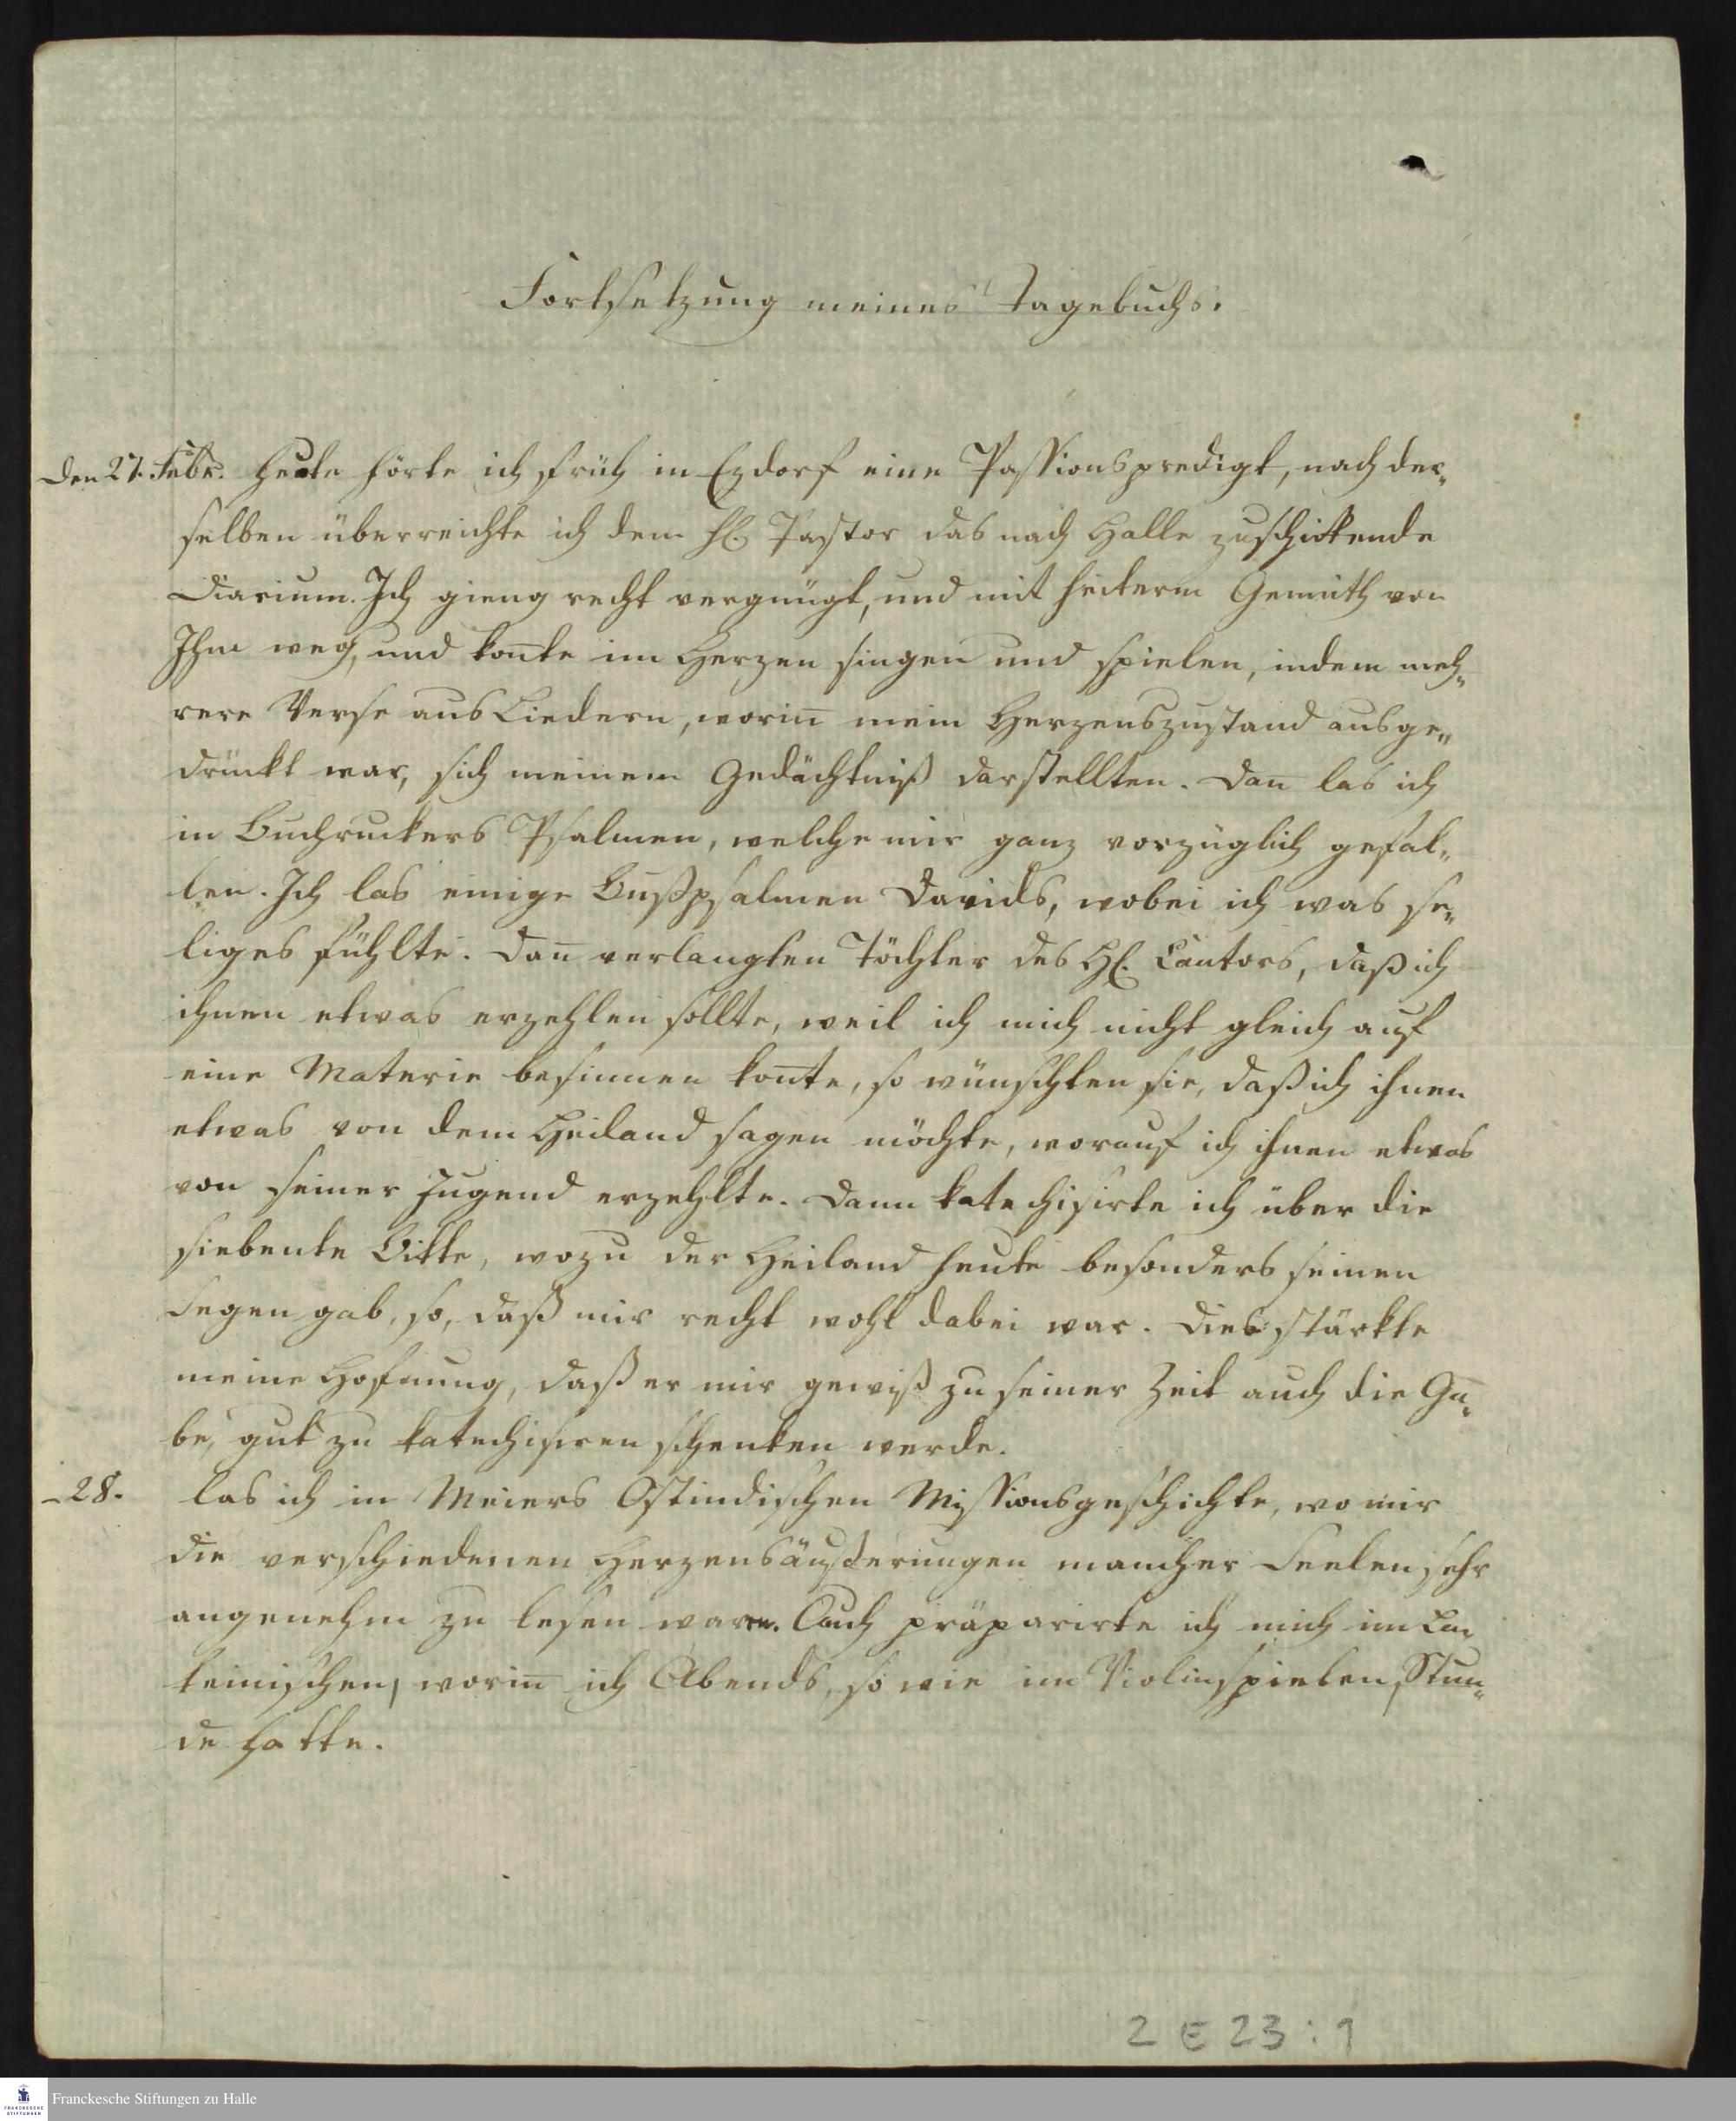 Fortsetzung meines Tagebuchs.
Den 27. Febr. Heute hörte ich früh in Ezdorf eine Passionspredigt, nach der„
selben überreichte ich dem H. Pastor das nach Halle zuschickende
Diarium. Ich gieng recht vergnügt, und mit heiterm Gemüth von
Ihm weg, und kon̄te im Herzen singen und spielen, indem meh„
rere Verse aus Liedern, worin̄ mein Herzenszustand ausge„
drückt war, sich meinem Gedächtniß darstellten. Dan̄ las ich
in Buchruckers Psalmen, welche mir ganz vorzüglich gefal„
len. Ich las einige Bußpsalmen Davids, wobei ich was se„
liges fühlte. Dan̄ verlangten Töchter des H. Cantors, daß ich
ihnen etwas erzehlen sollte, weil ich mich nicht gleich auf
eine Materie besinnen kon̄te, so wünschten sie, daß ich ihnen
etwas von dem Heiland sagen möchte, worauf ich ihnen etwas
von seiner Jugend erzehlte. Dann katechisirte ich über die
siebente Bitte, wozu der Heiland heute besonders seinen
Segen gab, so, daß mir recht wohl dabei war. Dies stärkte
meine Hofnung, daß er mir gewiß zu seiner Zeit auch die Ga„
be, gut zu katechisiren schenken werde.
– 28. las ich in Meiers Ostindischen Missionsgeschichte, wo mir
die verschiedenen Herzensäußerungen mancher Seelen sehr
angenehm zu lesen waren. Auch präparirte ich mich im La
teinischen, worin̄ ich Abends, so wie im Violinspielen, Stun„
de hatte.
2 E 23 : 1
Franckesche Stiftungen zu Halle
FRANCKESCHE
STIFTUNGEN